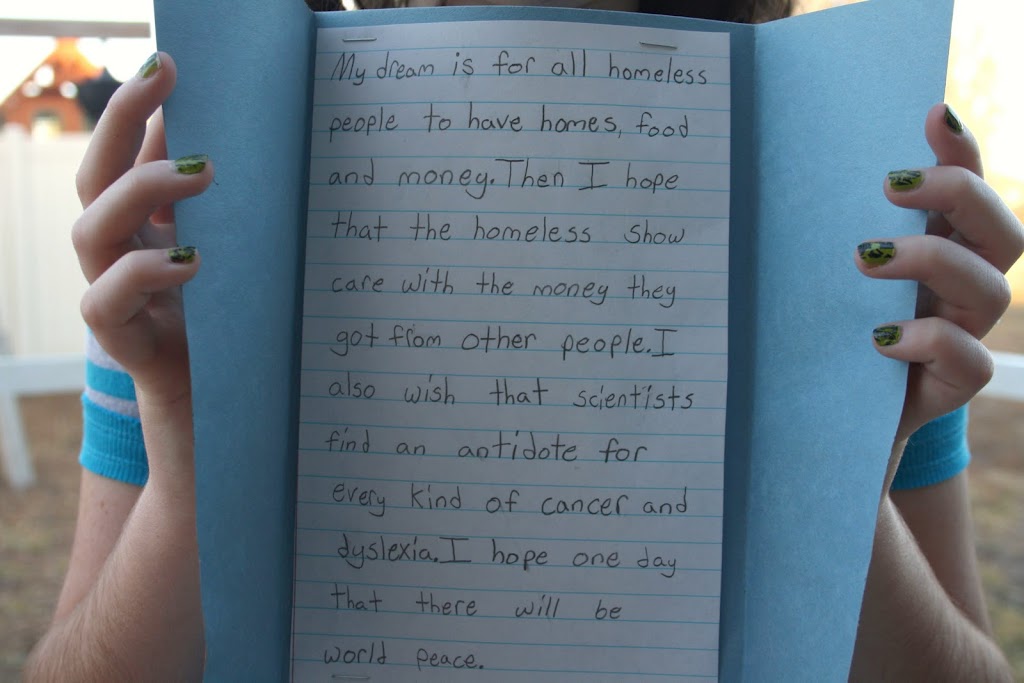 My dream is for all homeless
people to have homes, food
and money. Then I hope
that the homeless show
care with the money they
got from other people. I
also wish that scientists
find an antidote for
every kind of cancer and
dyslexia. I hope one day
that there will be
world peace.